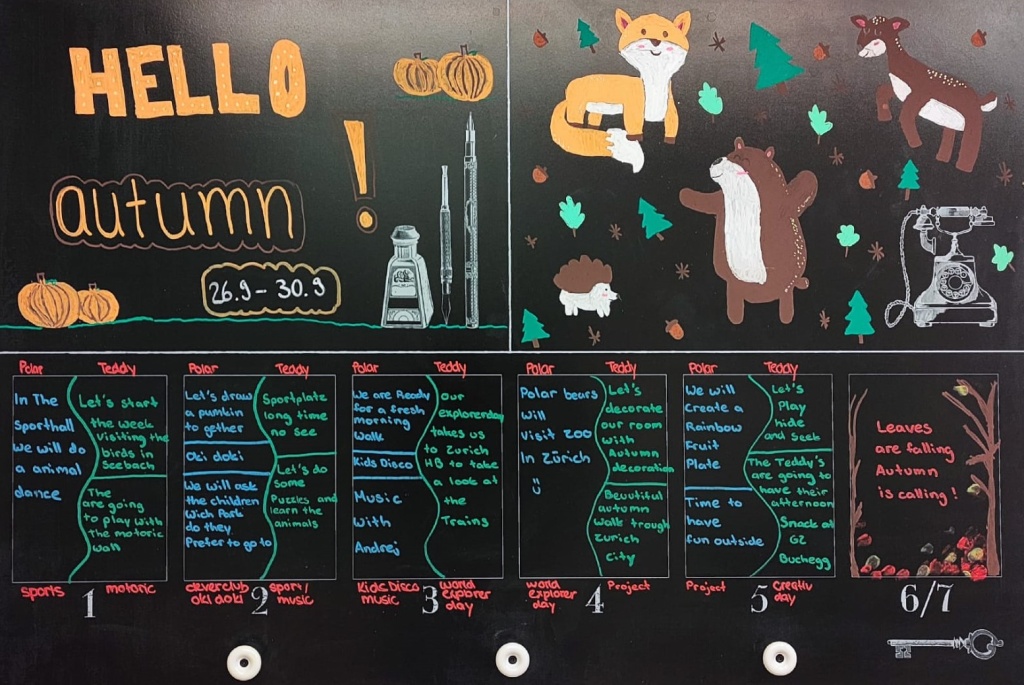 HELLO
autumn
!
26.9 - 30.9
Polar
In The
Sporthall
we will do
a animal
dance
Teddy
Let's start
the week
Visiting the
birds in
Seebach
The
are going
to play with
the motoric
wall
sports
motoric
1
Polar
Let's draw
a pumkin
to gether
Oki doki
We will ask
the children
Wich Park
do they
Prefer to go to
Teddy
Sportplate
long time
no see
Let's do
some
Puzzles and
learn the
animals
cleverclub
oki doki
sport/
music
2
Polar
We are Ready
for a fresh
morning
Walk
Kids Disco
Music
with
Andrej
Teddy
Our
explorerday
takes us
to Zürich
HB to take
a look at
the
Trains
Kids Disco
music
world
explorer
day
3
Polar
Polar bears
will
Visit Zoo
In Zürich
Teddy
Let's
decorate
our room
with
Autumn
decoration
Beuutiful
autumn
walk trough
Zürich
City
world
explorer
day
Project
4
Polar
We will
Create a
Rainbow
Fruit
Plate
Time to
have
fun outside
Teddy
Let's
Play
hide
and Seek
The Teddy's
are going to
have their
afternoon
Snack at
GZ
Buchegg
Project
Creativ
day
5
Leaves
are falling
Autumn
is calling!
6/7